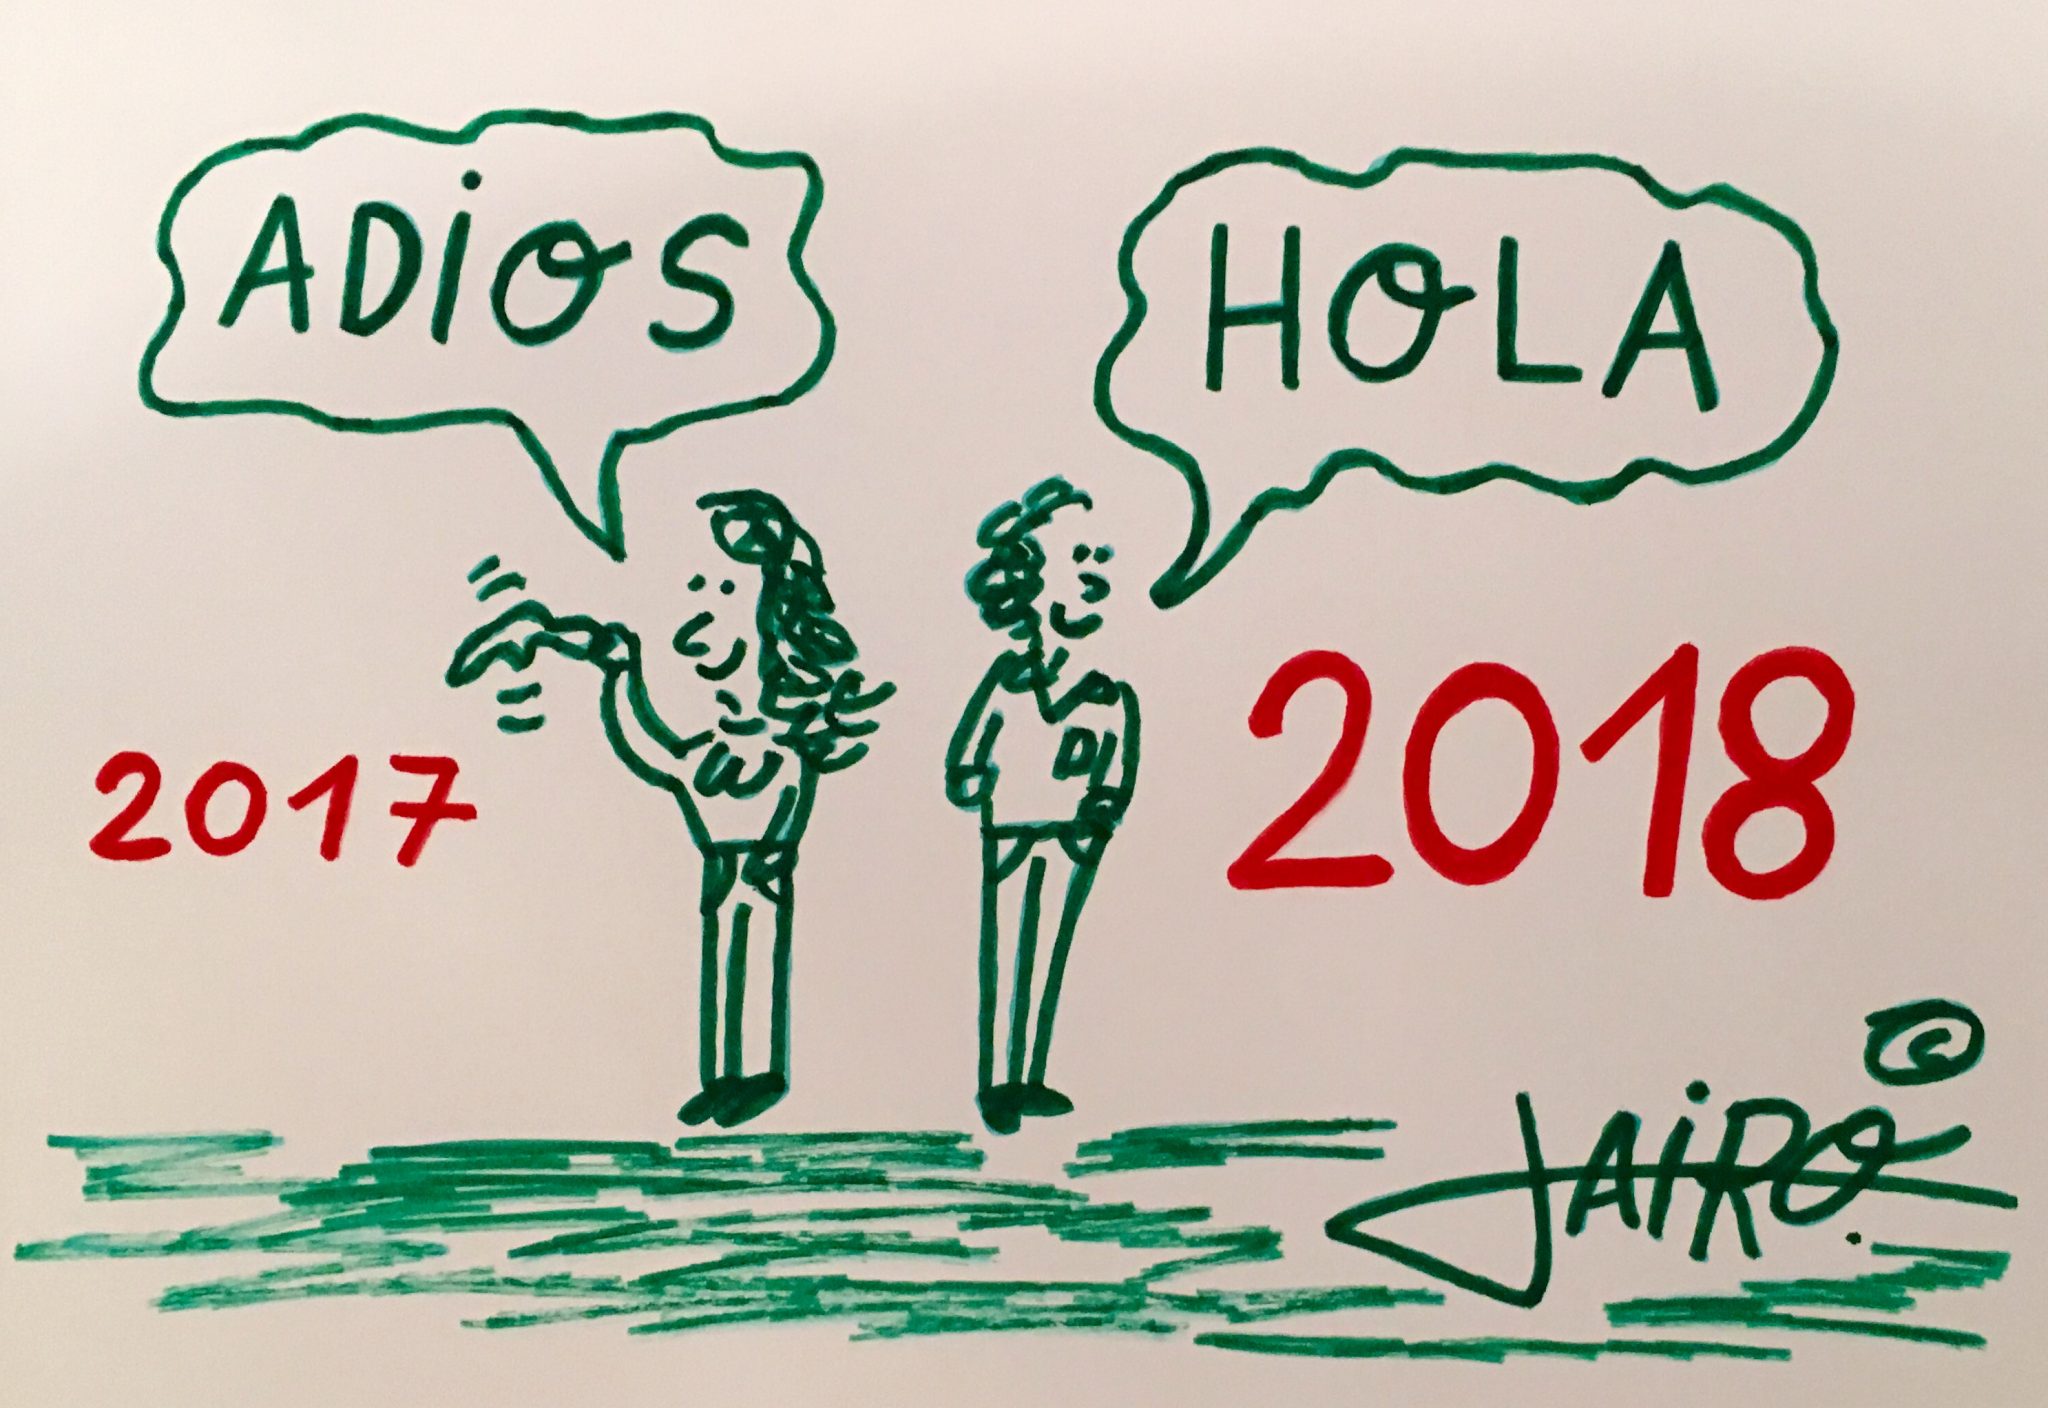 ADiOS
HOLA
2017
2018
W
DJ
©
JAiRO.